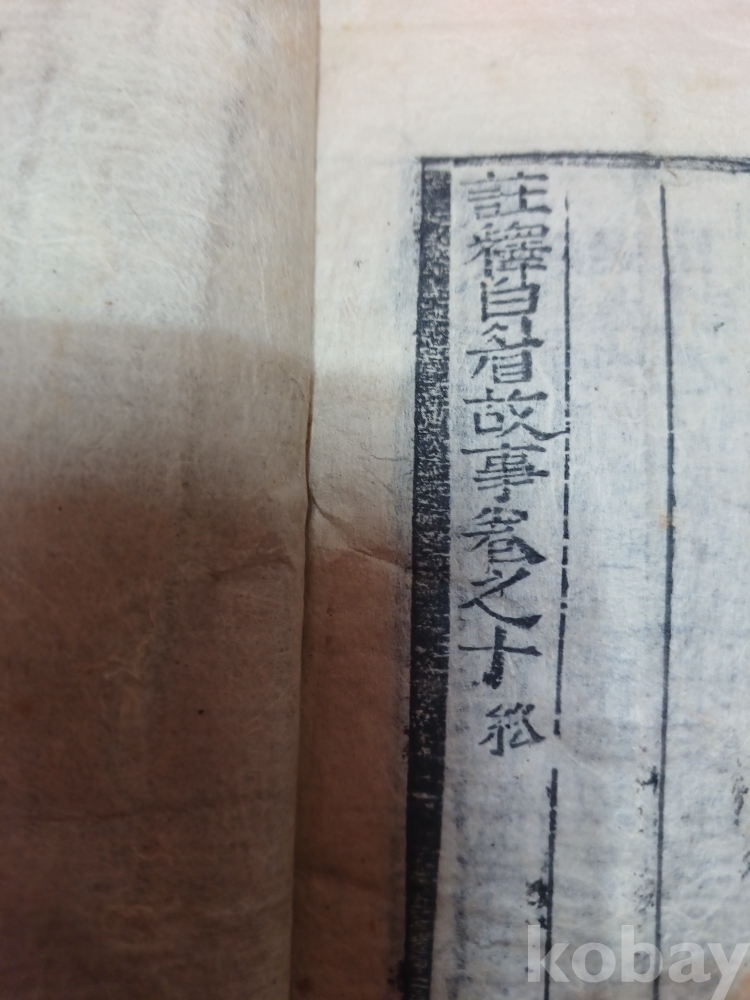 註釋白眉故事卷之十終
kobay